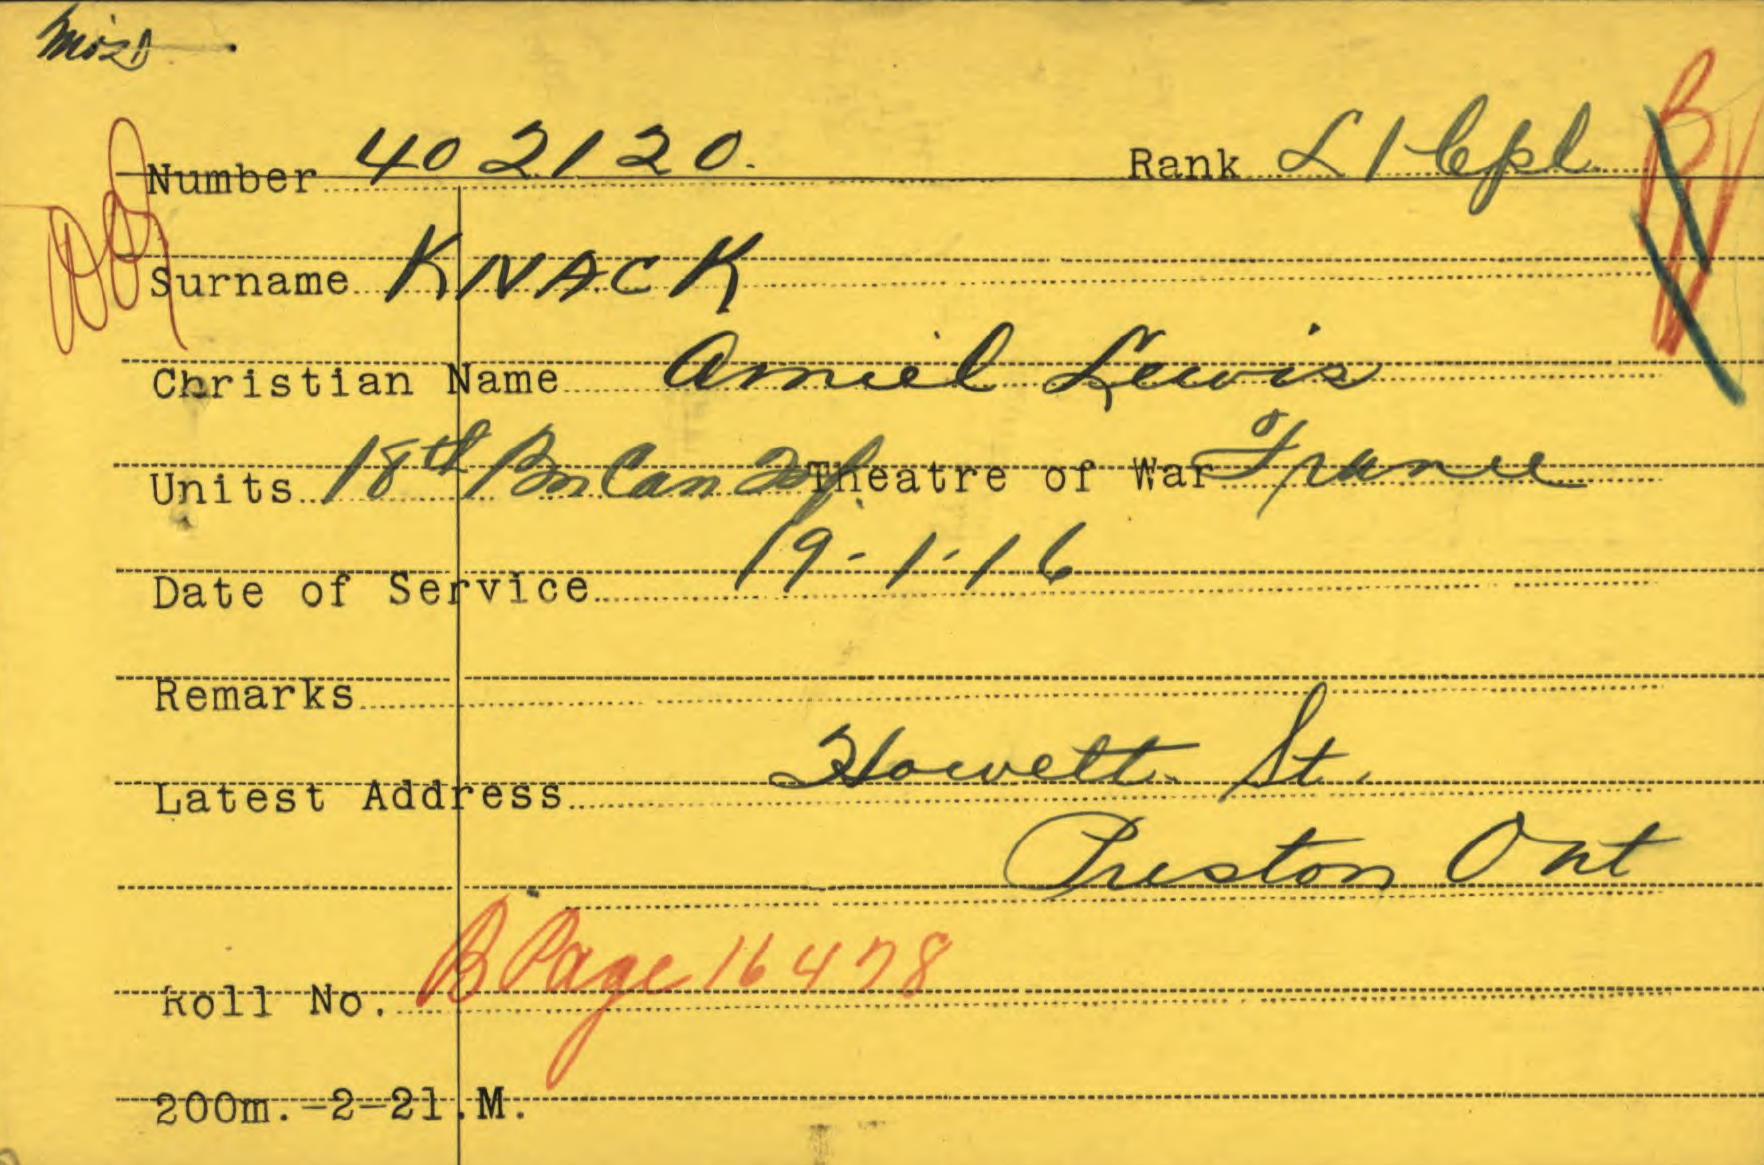 Number 402120. Rank L/Cpl.
Surname KNACK
Christian Name Amiel Lewis
Units 18th Bn Can Inf Theatre of War France
Date of Service 19-1-16
Remarks
Latest Address Howett St.
Preston Ont
Roll No. B Page 16478
200m.-2-21.M.